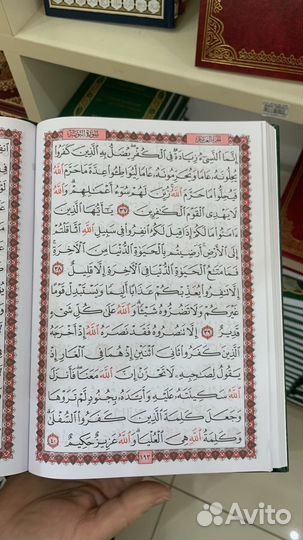 سورة التوبة
الجزء العاشر
إِنَّمَا ٱلنَّسِىٓءُ زِيَادَةٌ فِى ٱلْكُفْرِ يُضَلُّ بِهِ ٱلَّذِينَ كَفَرُوا۟
يُحِلُّونَهُۥ عَامًا وَيُحَرِّمُونَهُۥ عَامًا لِّيُوَاطِـُٔوا۟ عِدَّةَ مَا حَرَّمَ ٱللَّهُ
فَيُحِلُّوا۟ مَا حَرَّمَ ٱللَّهُ زُيِّنَ لَهُمْ سُوٓءُ أَعْمَـٰلِهِمْ وَٱللَّهُ
لَا يَهْدِى ٱلْقَوْمَ ٱلْكَـٰفِرِينَ ٣٧ يَـٰٓأَيُّهَا ٱلَّذِينَ
ءَامَنُوا۟ مَا لَكُمْ إِذَا قِيلَ لَكُمُ ٱنفِرُوا۟ فِى سَبِيلِ ٱللَّهِ ٱثَّاقَلْتُمْ
إِلَى ٱلْأَرْضِ أَرَضِيتُم بِٱلْحَيَوٰةِ ٱلدُّنْيَا مِنَ ٱلْـَٔاخِرَةِ
فَمَا مَتَـٰعُ ٱلْحَيَوٰةِ ٱلدُّنْيَا فِى ٱلْـَٔاخِرَةِ إِلَّا قَلِيلٌ ٣٨
إِلَّا تَنفِرُوا۟ يُعَذِّبْكُمْ عَذَابًا أَلِيمًا وَيَسْتَبْدِلْ قَوْمًا
غَيْرَكُمْ وَلَا تَضُرُّوهُ شَيْـًٔا وَٱللَّهُ عَلَىٰ كُلِّ شَىْءٍ
قَدِيرٌ ٣٩ إِلَّا تَنصُرُوهُ فَقَدْ نَصَرَهُ ٱللَّهُ إِذْ أَخْرَجَهُ
ٱلَّذِينَ كَفَرُوا۟ ثَانِىَ ٱثْنَيْنِ إِذْ هُمَا فِى ٱلْغَارِ إِذْ
يَقُولُ لِصَـٰحِبِهِۦ لَا تَحْزَنْ إِنَّ ٱللَّهَ مَعَنَا فَأَنزَلَ
ٱللَّهُ سَكِينَتَهُۥ عَلَيْهِ وَأَيَّدَهُۥ بِجُنُودٍ لَّمْ تَرَوْهَا
وَجَعَلَ كَلِمَةَ ٱلَّذِينَ كَفَرُوا۟ ٱلسُّفْلَىٰ
وَكَلِمَةُ ٱللَّهِ هِىَ ٱلْعُلْيَا وَٱللَّهُ عَزِيزٌ حَكِيمٌ ٤٠
١٩٣
Avito